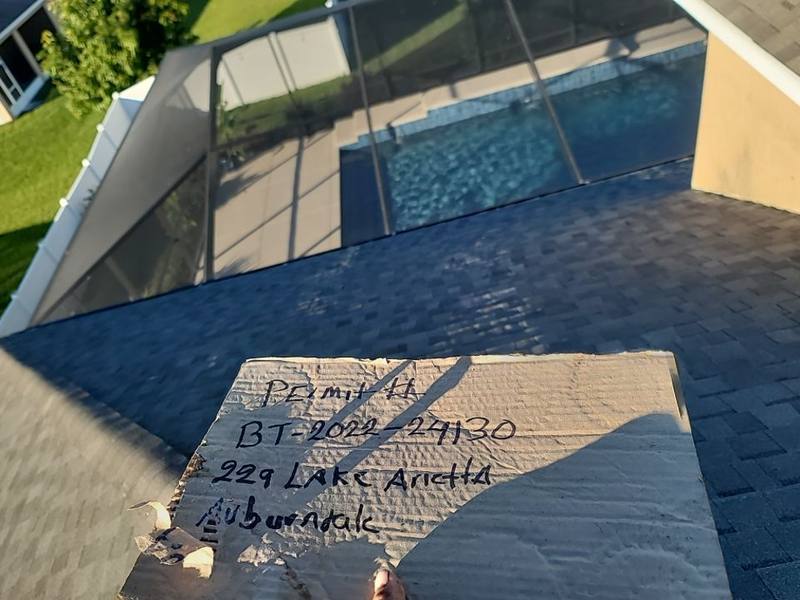 PErmit #
BT-2022-29130
229 LAKE AriettA
Auburndale